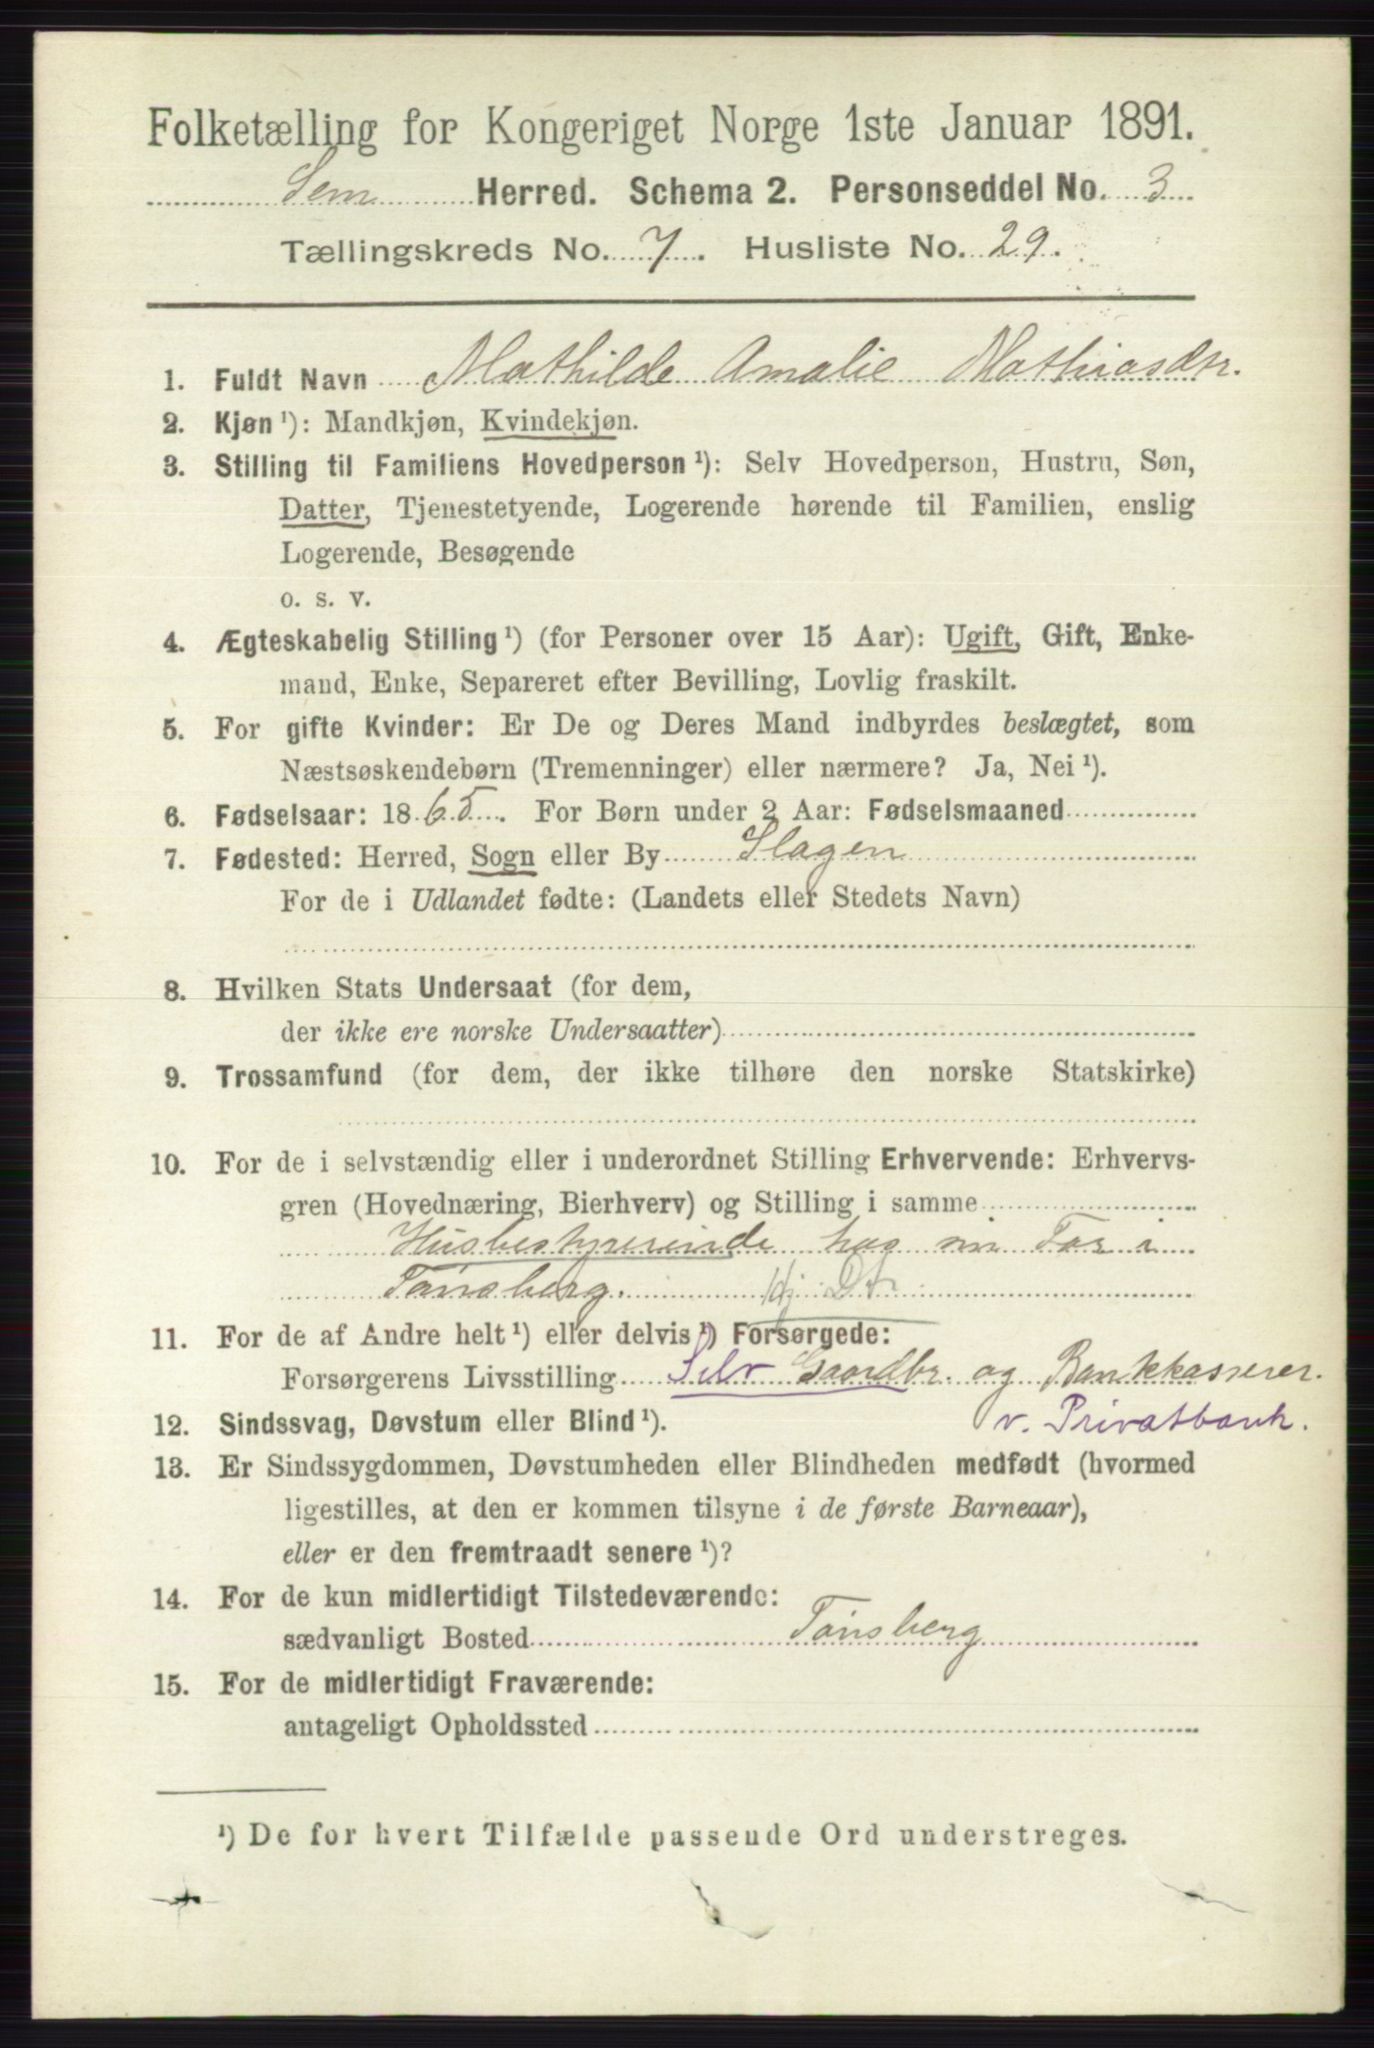 Folketælling for Kongeriget Norge 1ste Januar 1891.
Sem Herred. Schema 2. Personseddel No. 3
Tællingskreds No. 7. Husliste No. 29.
1. Fuldt Navn Mathilde Amalie Mathiasdtr.
2. Kjøn ¹): Mandkjøn, Kvindekjøn.
3. Stilling til Familiens Hovedperson ¹): Selv Hovedperson, Hustru, Søn,
Datter, Tjenestetyende, Logerende hørende til Familien, enslig
Logerende, Besøgende
o. s. v.
4. Ægteskabelig Stilling ¹) (for Personer over 15 Aar): Ugift, Gift, Enke-
mand, Enke, Separeret efter Bevilling, Lovlig fraskilt.
5. For gifte Kvinder: Er De og Deres Mand indbyrdes beslægtet, som
Næstsøskendebørn (Tremenninger) eller nærmere? Ja, Nei ¹).
6. Fødselsaar: 1865. For Børn under 2 Aar: Fødselsmaaned
7. Fødested: Herred, Sogn eller By Slagen
For de i Udlandet fødte: (Landets eller Stedets Navn)
8. Hvilken Stats Undersaat (for dem,
der ikke ere norske Undersaatter)
9. Trossamfund (for dem, der ikke tilhøre den norske Statskirke)
10. For de i selvstændig eller i underordnet Stilling Erhvervende: Erhvervs-
gren (Hovednæring, Bierhverv) og Stilling i samme
Husbestyrerinde hos sin Far i
Tønsberg. Hj. Dtr
11. For de af Andre helt ¹) eller delvis ¹) Forsørgede:
Forsørgerens Livsstilling Selv Gaardbr. og Bankkasserer.
v. Privatbank.
12. Sindssvag, Døvstum eller Blind ¹).
13. Er Sindssygdommen, Døvstumheden eller Blindheden medfødt (hvormed
ligestilles, at den er kommen tilsyne i de første Barneaar),
eller er den fremtraadt senere ¹)?
14. For de kun midlertidigt Tilstedeværende:
sædvanligt Bosted Tønsberg
15. For de midlertidigt Fraværende:
antageligt Opholdssted
¹) De for hvert Tilfælde passende Ord understreges.